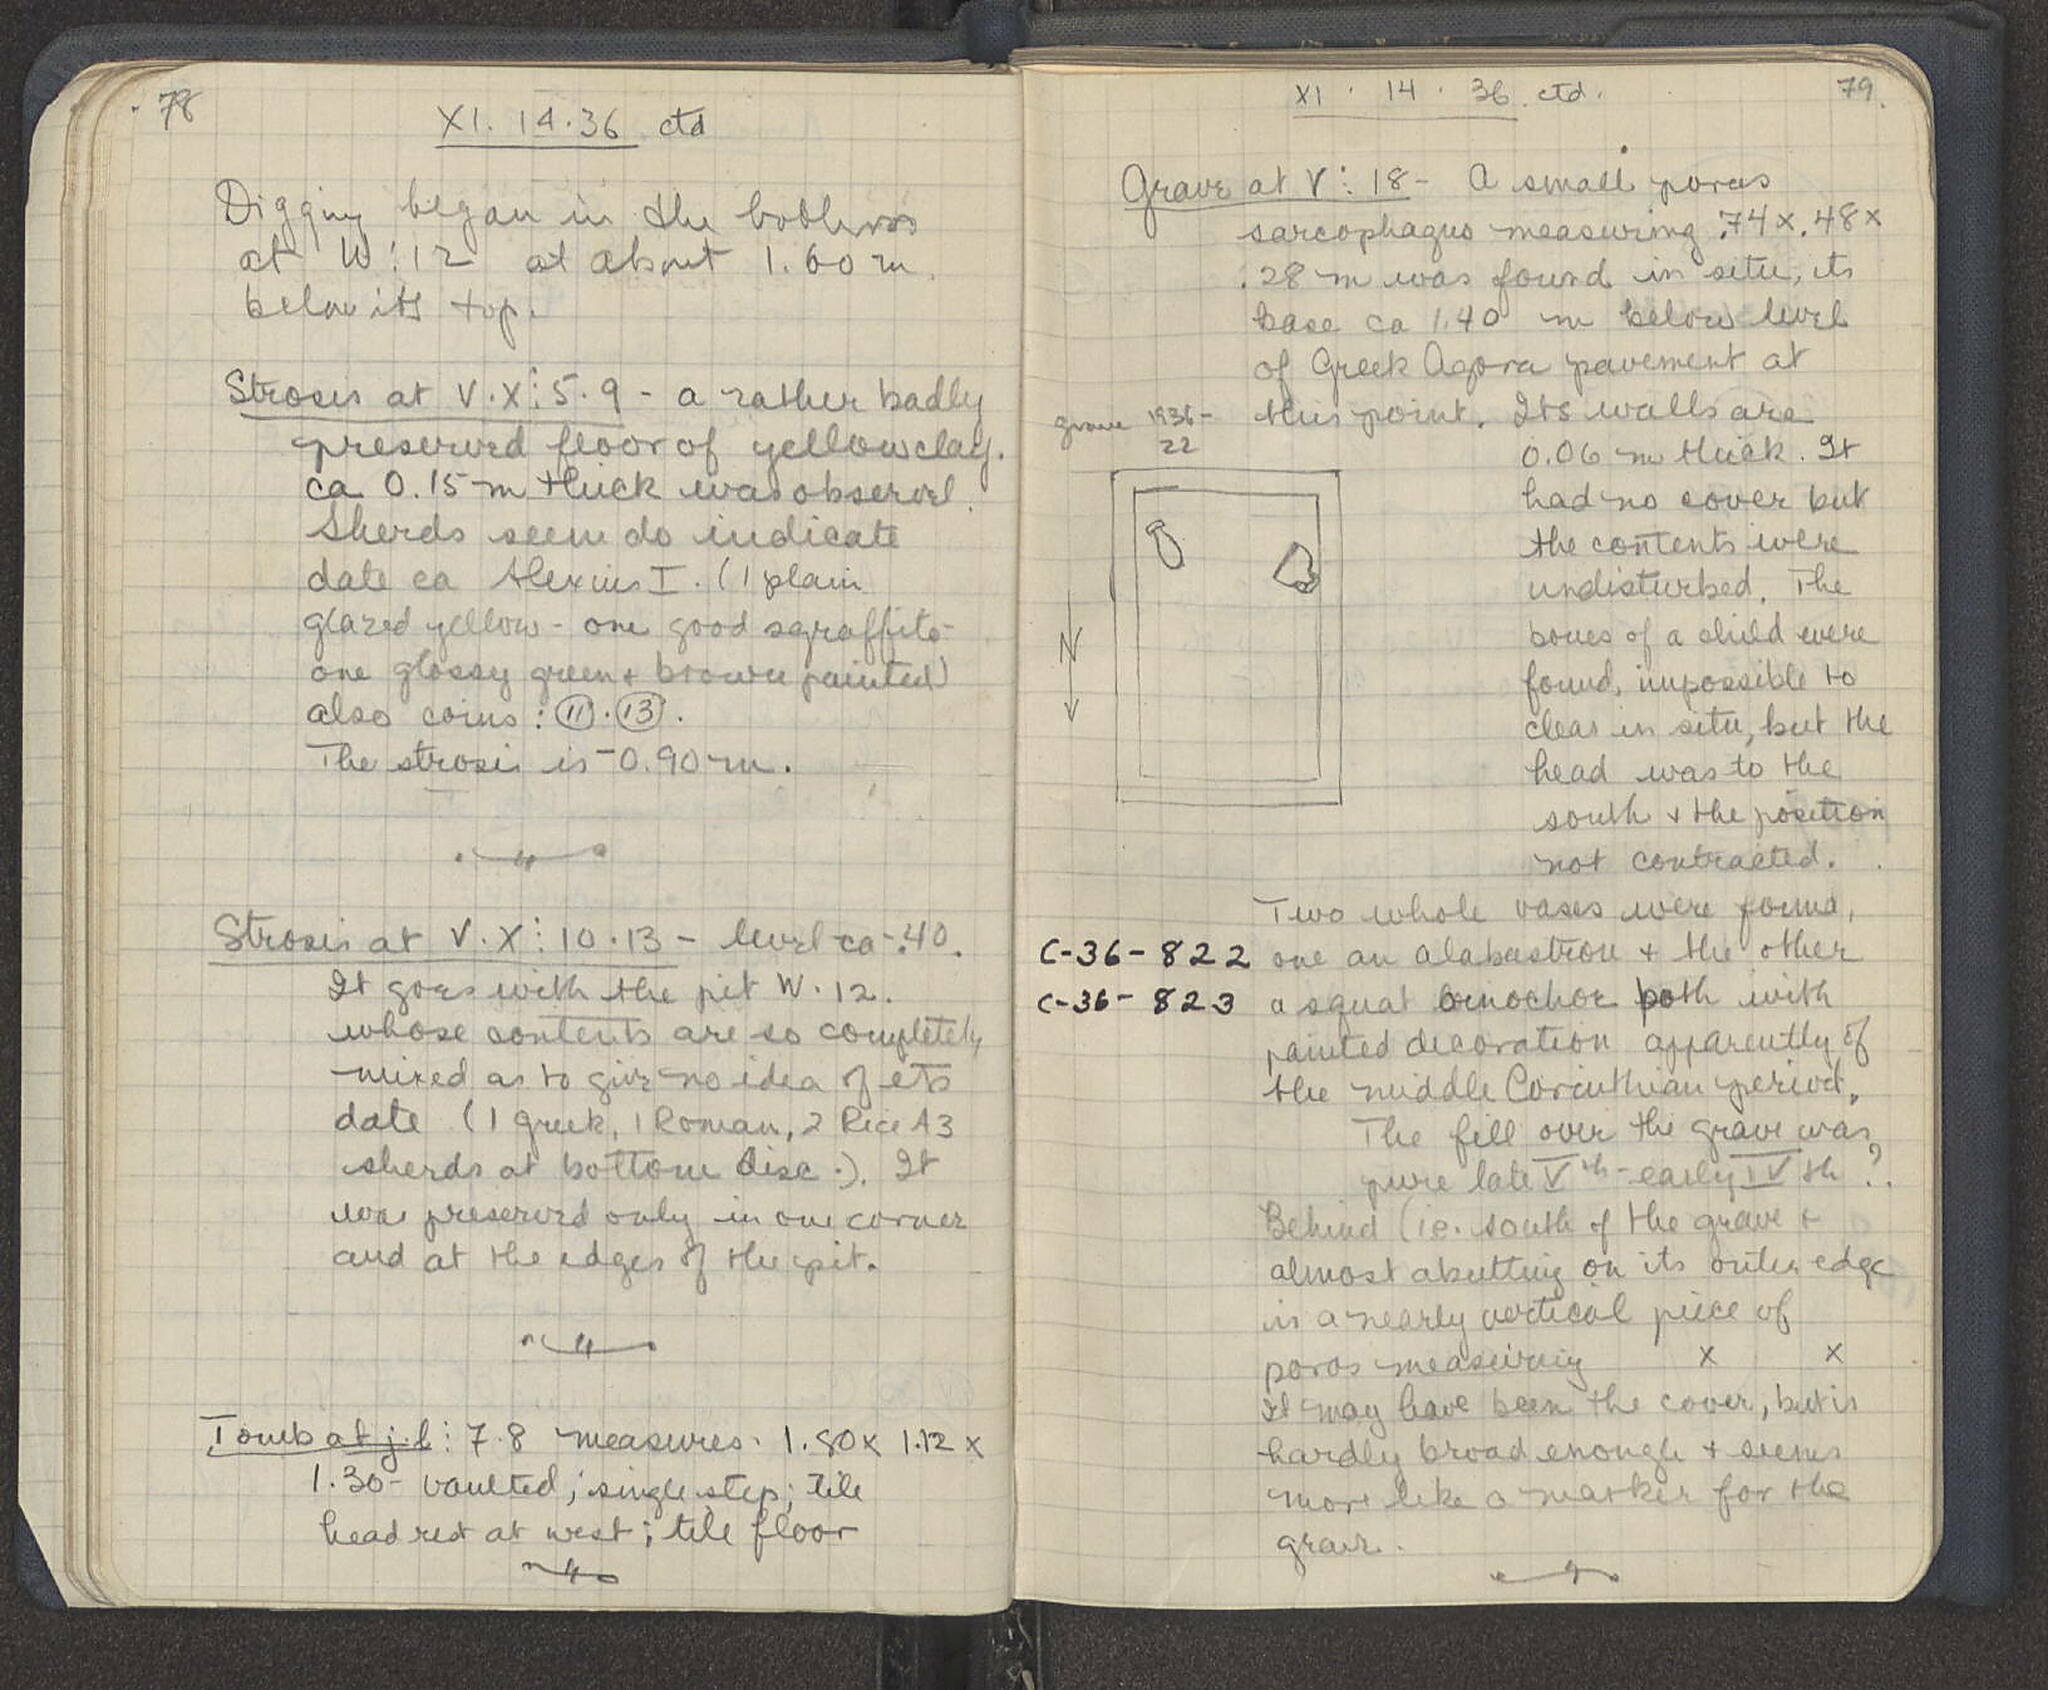 78
XI. 14. 36 ctd
Digging began in the bothros
at W:12 at about 1.60 m
below its top.
Strosis at V.X:5.9 - a rather badly
preserved floor of yellow clay.
ca 0.15 m thick was observed.
Sherds seem do indicate
date ca Alexius I. (1 plain
glazed yellow - one good sgraffito -
one glossy green + brown painted)
also coins: (11).(13).
The strosis is -0.90 m.
Strosis at V.X:10.13 - level ca -.40.
It goes with the pit W.12.
whose contents are so completely
mixed as to give no idea of its
date (1 Greek, 1 Roman, 2 Rice A3
sherds at bottom disc.). It
was preserved only in one corner
and at the edges of the pit.
Tomb at j.l: 7.8 measures. 1.80 x 1.12 x
1.30 - vaulted; single step; tile
head rest at west; tile floor
XI. 14. 36 ctd.
79.
Grave at V:18 - A small poros
sarcophagus measuring .74 x .48 x
.28 m was found in situ, its
base ca 1.40 m below level
of Greek Agora pavement at
this point. Its walls are
grave 1936-
22
0.06 m thick. It
had no cover but
the contents were
undisturbed. The
bones of a child were
found, impossible to
clear in situ, but the
head was to the
south + the position
not contracted.
N
Two whole vases were found,
C-36-822 one an alabastron + the other
C-36-823 a squat oinochoe both with
painted decoration apparently of
the middle Corinthian period.
The fill over the grave was
pure late Vth - early IVth ?.
Behind (i.e. south of the grave +
almost abutting on its outer edge
is a nearly vertical piece of
poros measuring x x
It may have been the cover, but is
hardly broad enough + seems
more like a marker for the
grave.